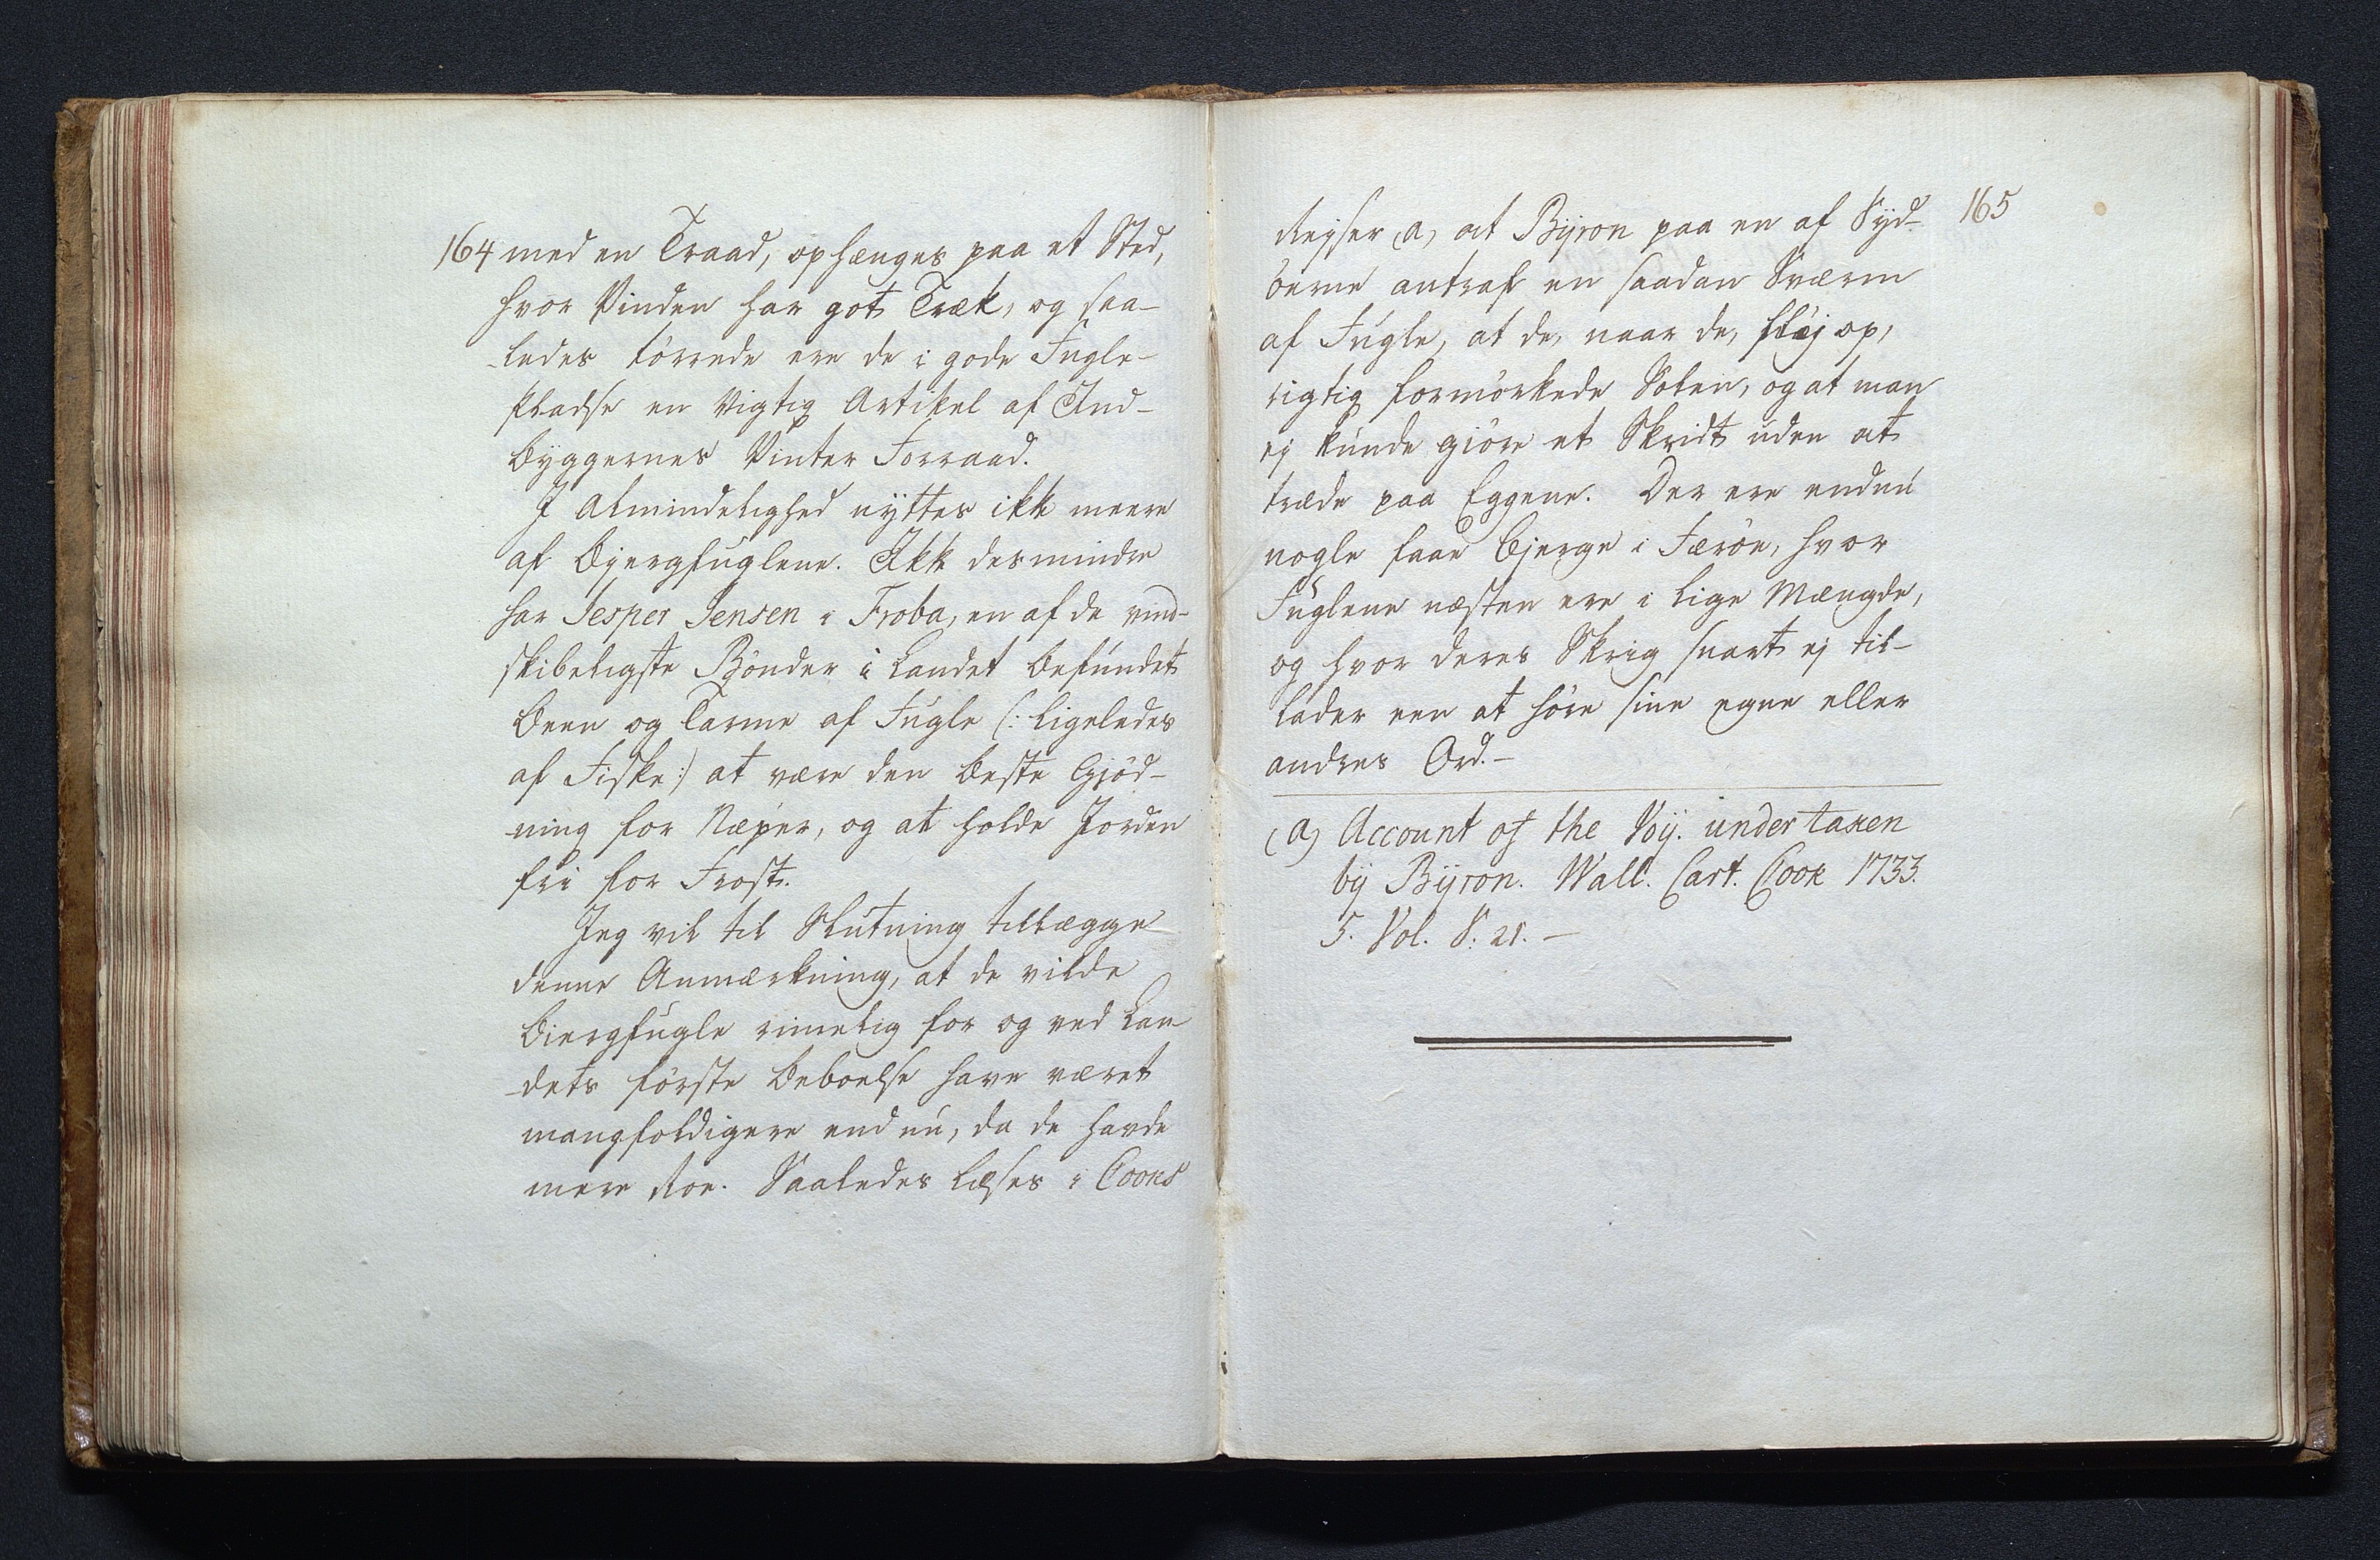 164 med en Traad, ophænges paa et Sted,
hvor Vinden har got Træk, og saa-
ledes törrede ere de i gode Fugle-
pladse en vigtig Artikel af Ind-
byggernes Vinter Forraad.
I Almindelighed nyttes ikke meere
af Bjergfuglene. Ikke desmindre
har Jesper Jensen i Froba, en af de vind-
skibeligste Bönder i Landet befundet
Been og Tarme af Fugle (: ligeledes
af Fiske :) at være den beste Gjöd-
ning for Næper, og at holde Jorden
fri for Frost.
Jeg vil til Slutning tillægge
denne Anmærkning, at de vilde
Biergfugle rimelig for og ved Lan-
dets förste Beboelse have været
mangfoldigere end nu, da de havde
mere Roe. Saaledes læses i Cooks
165
Rejser (a) at Byron paa en af Syd-
öerne antraf en saadan Sværm
af Fugle, at de, naar de, flöj op,
rigtig formörkede Solen, og at man
ej kunde giöre et Skridt uden at
træde paa Eggene. Der ere endnu
nogle faae Bjerge i Færöe, hvor
Fuglene næsten ere i lige Mængde,
og hvor deres Skrig snart ej til-
lader een at höre sine egne eller
andres Ord. -
(a) Account of the Voy. undertaken
by Byron. Wall. Cart. Cook 1733.
5. Vol. S: 21. -